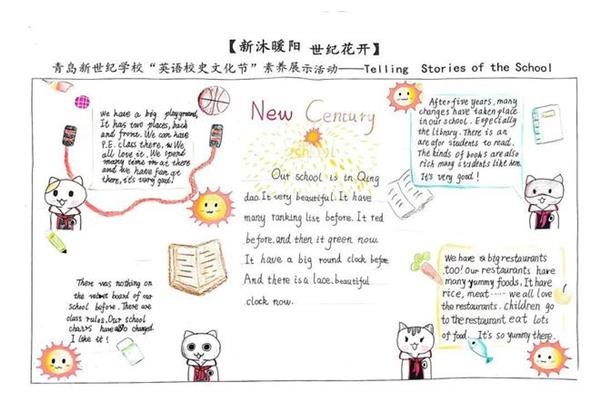 【新沐暖阳 世纪花开】
青岛新世纪学校“英语校史文化节”素养展示活动——Telling Stories of the School
We have a big playground,
It has two places, back
and front. We can have
P.E. class there,
All love it. We spend
many time at there
and we have fun at
there, it's very good!
New Century
Our school is in Qing
dao. It very beautiful. It have
many ranking list before. It red
before, and then it green now.
It have a big round clock before
And there is a lace beautiful
clock now.
After five years, many
changes have taken place
in our school. Especially
the library. There is an
are for students to read.
The kinds of books are also
rich many students like
It's very good!
There was nothing on
the board of our
school before. There are
class rules. Our school
chairs have also changed.
I like it!
We have a big restaurants
too! Our restaurants have
many yummy foods. It have
rice, meat ······ we all love
the restaurants. children go
to the restaurant eat lots
of food. It's so yummy there.